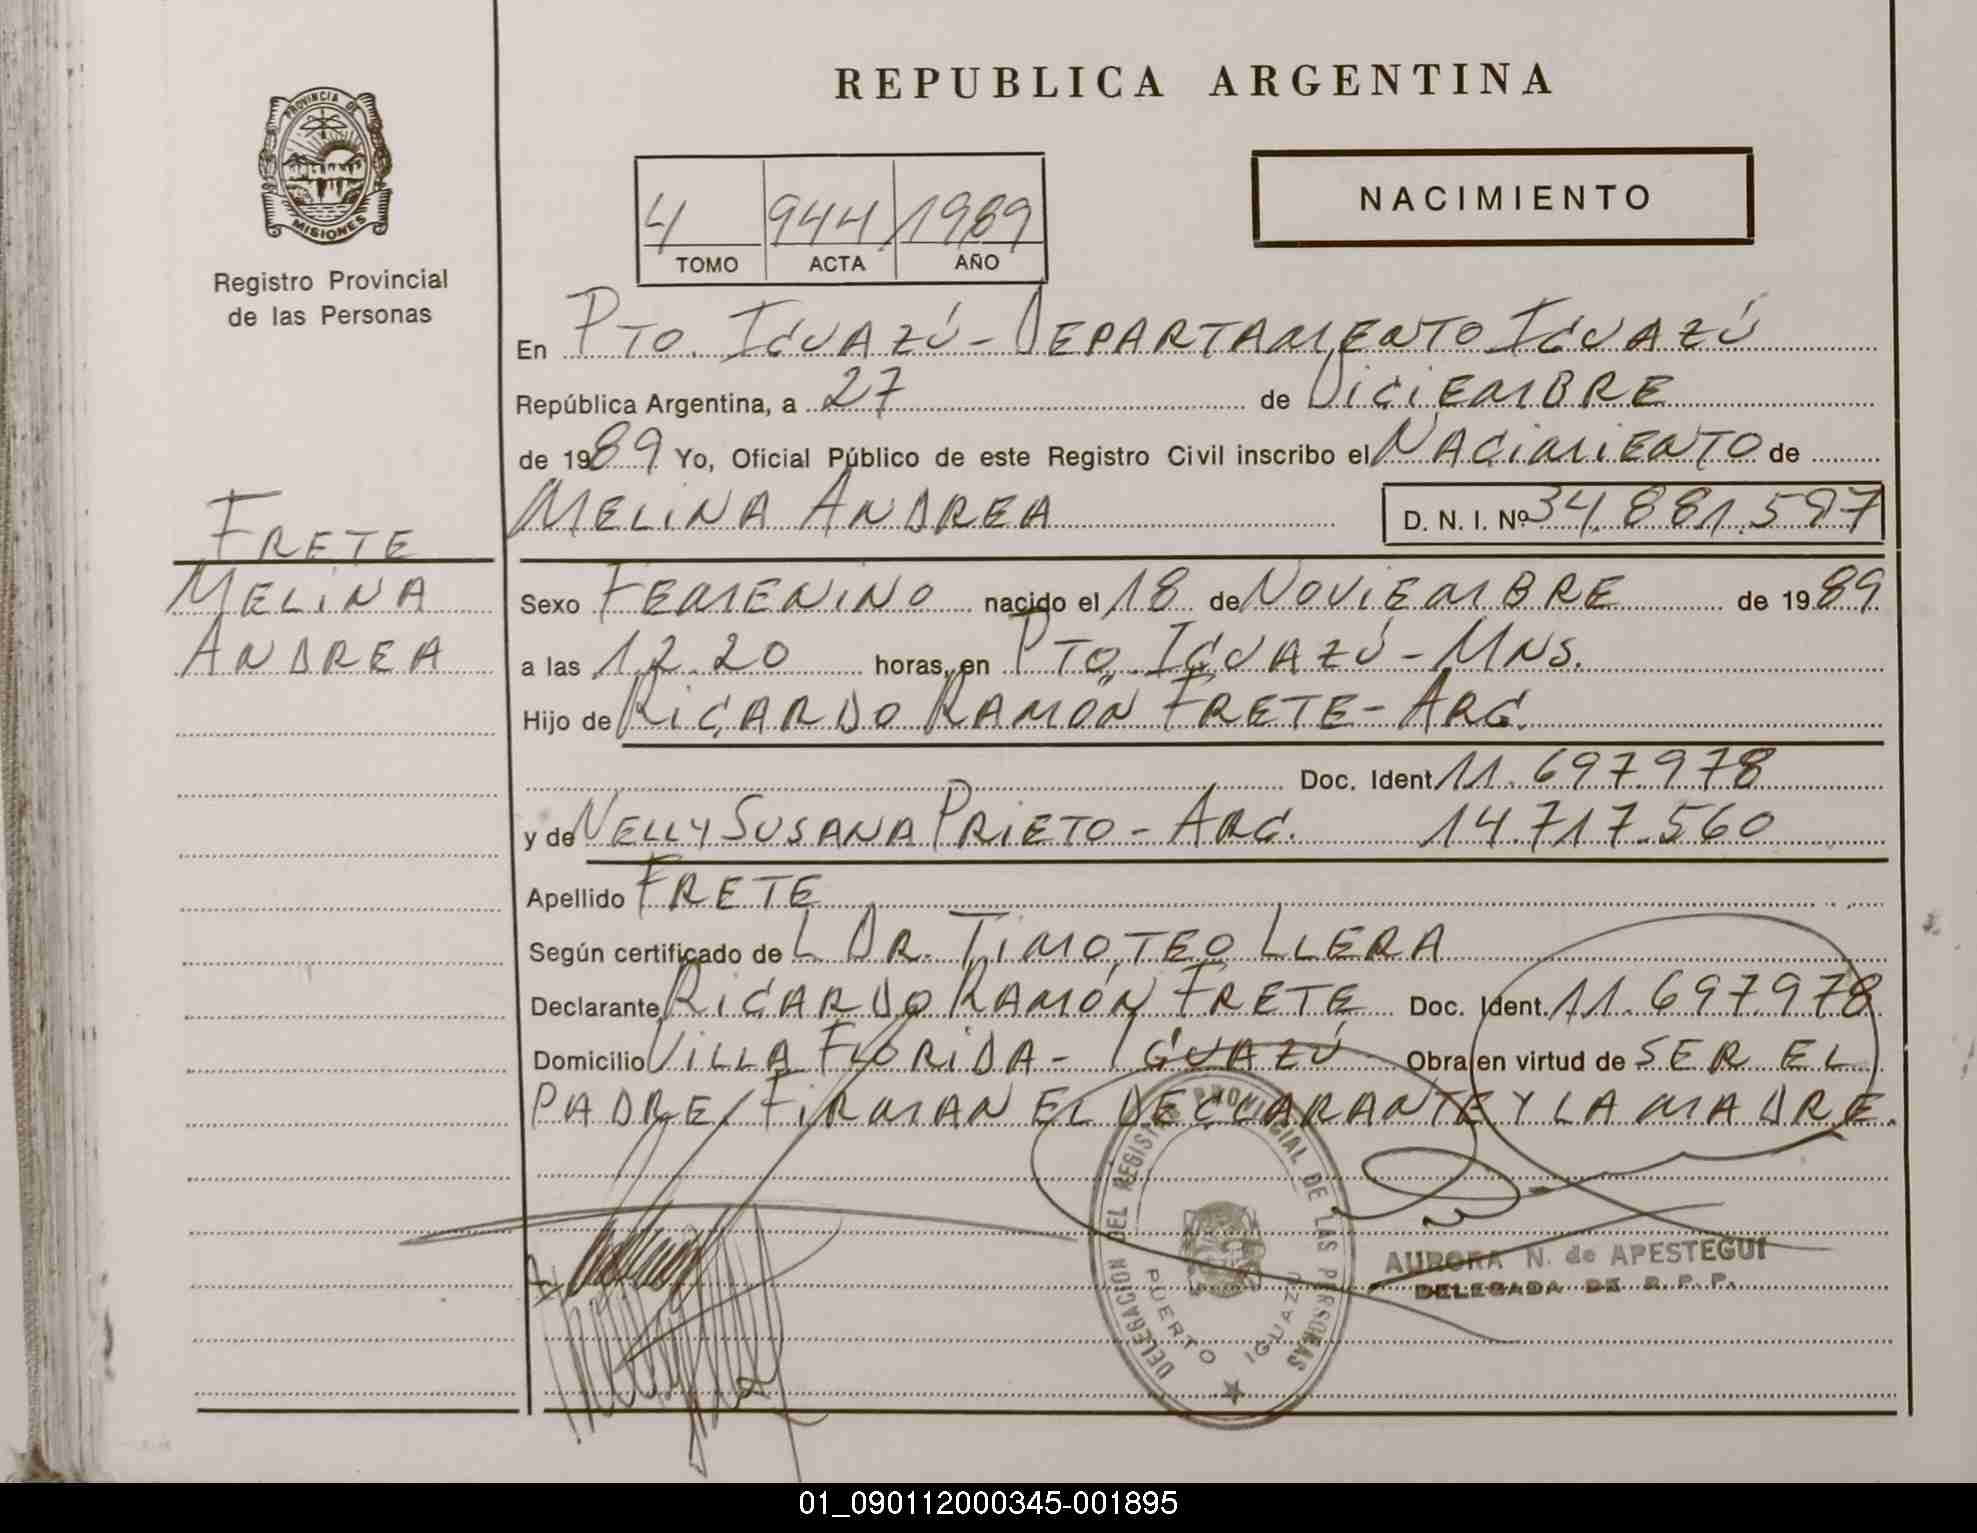 REPUBLICA ARGENTINA
PROVINCIA DE
MISIONES
Registro Provincial
de las Personas
NACIMIENTO
4 944 1989
TOMO ACTA AÑO
En PTO. IGUAZÚ - DEPARTAMENTO IGUAZÚ
República Argentina, a 27 de DICIEMBRE
de 1989 Yo, Oficial Público de este Registro Civil inscribo el NACIMIENTO de
MELINA ANDREA D. N. I. Nº 34.881.597
FRETE
MELINA
ANDREA
Sexo FEMENINO nacido el 18 de NOVIEMBRE de 1989
a las 12.20 horas, en PTO. IGUAZÚ - MNS.
Hijo de RICARDO RAMÓN FRETE - ARG.
Doc. Ident 11.697.978
y de NELLY SUSANA PRIETO - ARG. 14.717.560
Apellido FRETE
Según certificado de L DR. TIMOTEO LLERA
Declarante RICARDO RAMÓN FRETE Doc. Ident. 11.697.978
Domicilio VILLA FLORIDA - IGUAZÚ Obra en virtud de SER EL
PADRE/FIRMAN EL DECLARANTE Y LA MADRE.
DELEGACION DEL REGISTRO PROVINCIAL DE LAS PERSONAS
PUERTO IGUAZU
AURORA N. de APESTEGUI
DELEGADA DE R. P. P.
01_090112000345-001895